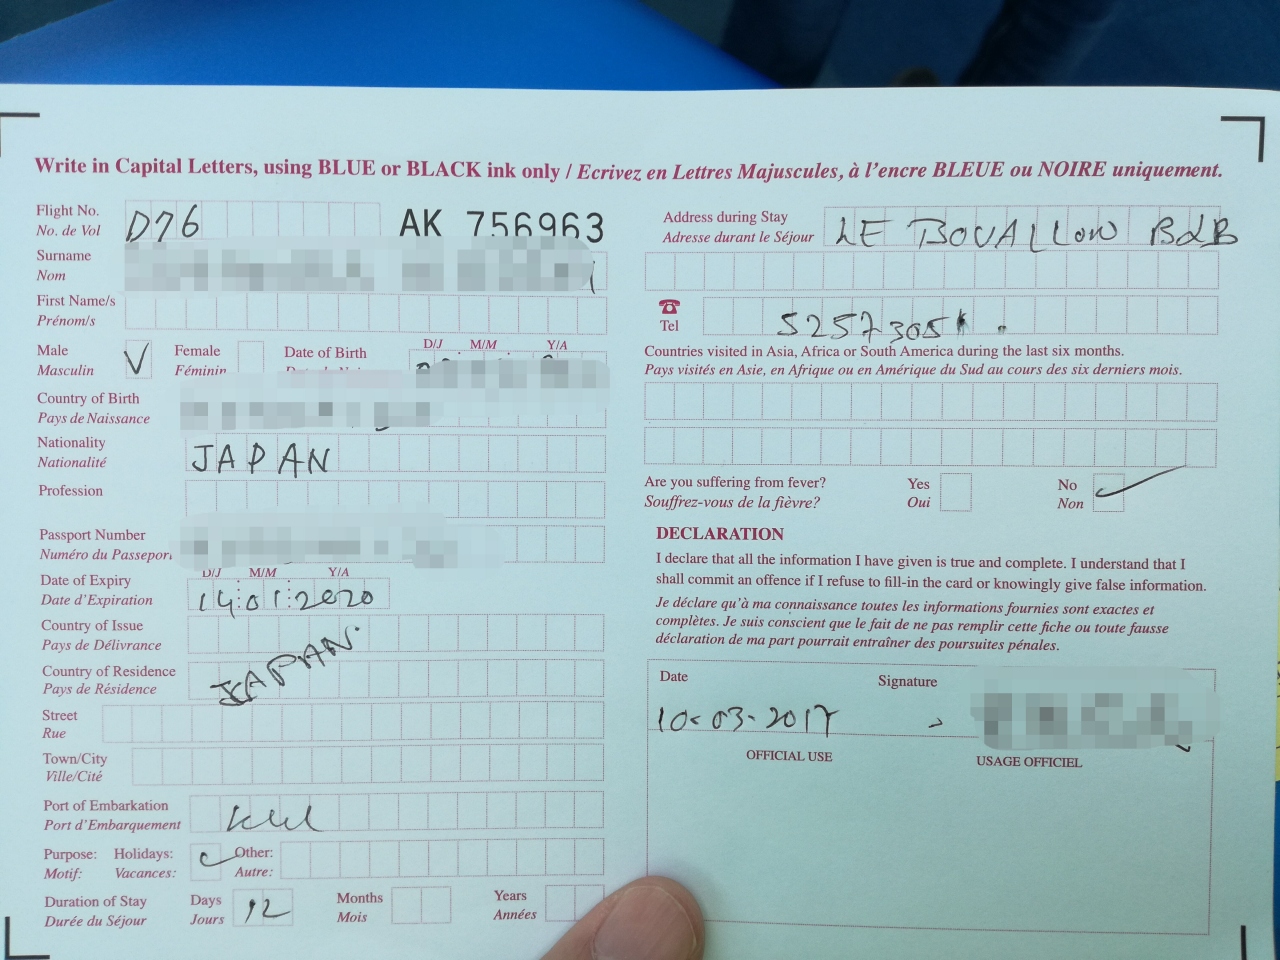 Write in Capital Letters, using BLUE or BLACK ink only / Ecrivez en Lettres Majuscules, à l'encre BLEUE ou NOIRE uniquement.
Flight No.
No. de Vol
D76
AK 756963
Surname
Nom
First Name/s
Prénom/s
Male
Masculin
V
Female
Féminin
Date of Birth
D/J M/M Y/A
Country of Birth
Pays de Naissance
Nationality
Nationalité
JAPAN
Profession
Passport Number
Numéro du Passeport
Date of Expiry
Date d'Expiration
D/J M/M Y/A
14:01:2020
Country of Issue
Pays de Délivrance
Country of Residence
Pays de Résidence
JAPAN.
Street
Rue
Town/City
Ville/Cité
Port of Embarkation
Port d'Embarquement
kul
Purpose: Holidays: Other:
Motif: Vacances: Autre:
Duration of Stay
Durée du Séjour
Days
Jours
12
Months
Mois
Years
Années
Address during Stay
Adresse durant le Séjour
LE BOUALLON B&B
Tel
Countries visited in Asia, Africa or South America during the last six months.
Pays visités en Asie, en Afrique ou en Amérique du Sud au cours des six derniers mois.
Are you suffering from fever?
Souffrez-vous de la fièvre?
Yes
Oui
No
Non
DECLARATION
I declare that all the information I have given is true and complete. I understand that I
shall commit an offence if I refuse to fill-in the card or knowingly give false information.
Je déclare qu'à ma connaissance toutes les informations fournies sont exactes et
complètes. Je suis conscient que le fait de ne pas remplir cette fiche ou toute fausse
déclaration de ma part pourrait entraîner des poursuites pénales.
Date
10-03-2017
Signature
OFFICIAL USE
USAGE OFFICIEL